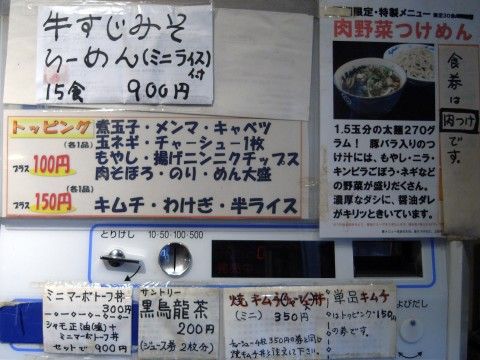 牛すじみそ
らーめん(ミニライス)付
15食 900円
期間限定・特製メニュー
肉野菜つけめん
食券は
肉つけ
です。
1.5玉分の太麺270グ
ラム! 豚バラ入りのつ
け汁には、もやし・ニラ・
キンピラごぼう・ネギなど
の野菜が盛りだくさん。
濃厚なダシに、醤油ダレ
がキリッときいています。
トッピング
煮玉子・メンマ・キャベツ
(各1品)
玉ネギ・チャーシュー1枚
プラス 100円
もやし・揚げニンニクチップス
肉そぼろ・のり・めん大盛
(各1品)
プラス 150円
キムチ・わけぎ・半ライス
とりけし
10・50・100・500
ミニマーボドーフ丼
300円
シャモ正油(塩)+
ミニマーボドーフ丼
セットで900円
サントリー
黒烏龍茶
200円
(ジュース券2枚分)
焼キムチじゃが丼
(ミニ) 350円
単品キムチ
はトッピング150円
の券です。
よびだし